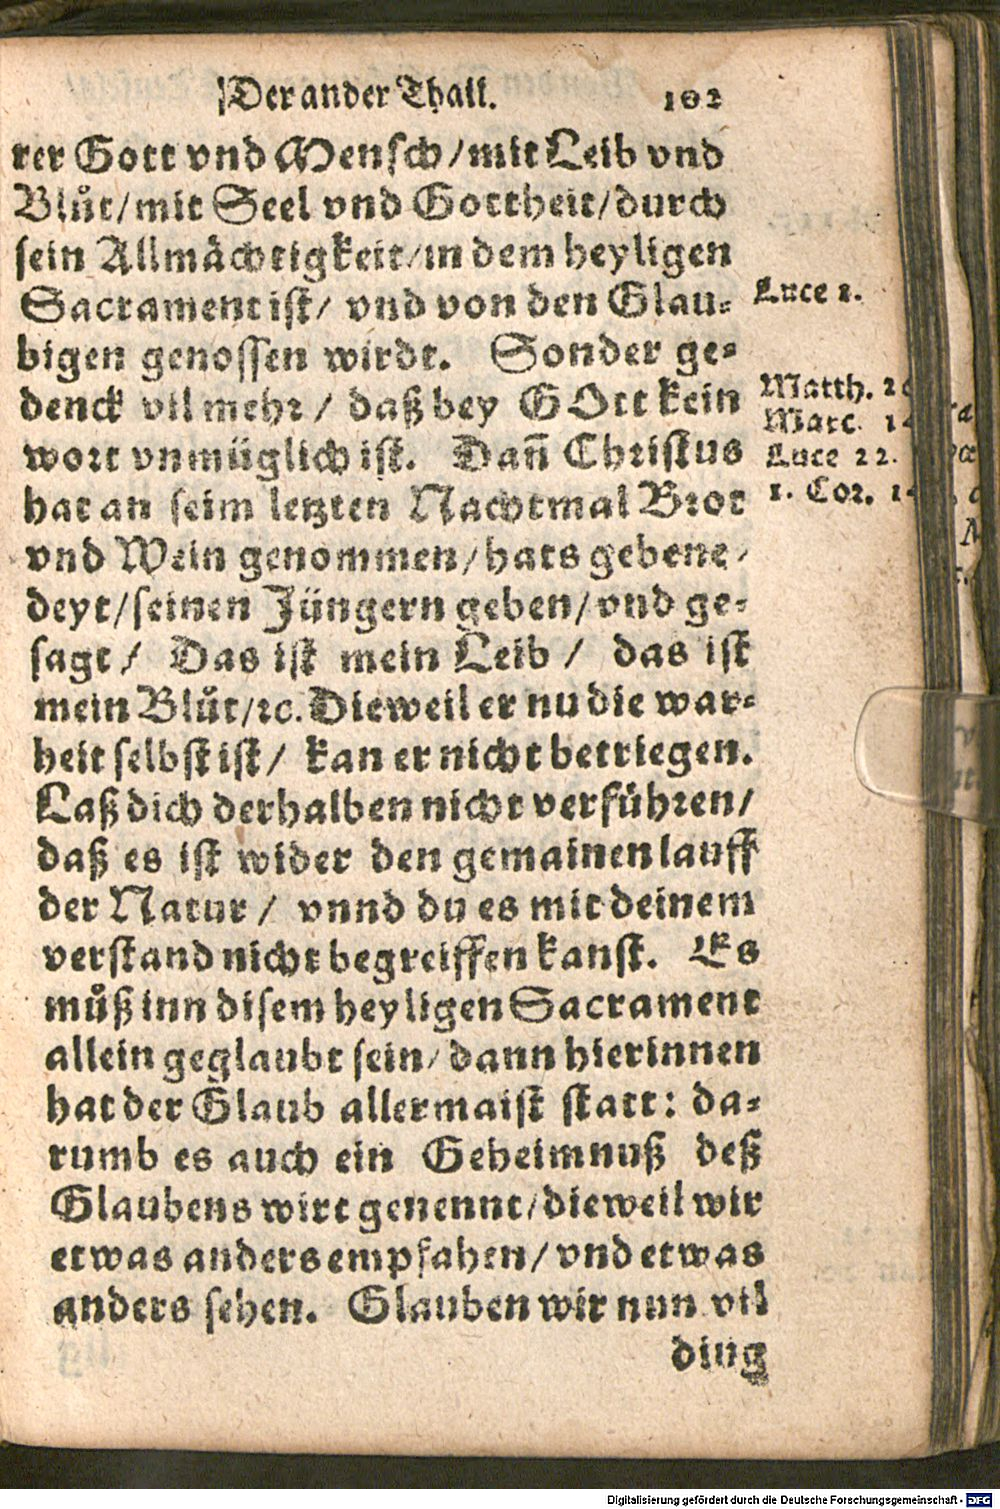 Der ander Thail. 102
rer Gott vnd Mensch/mit Leib vnd
Blůt/mit Seel vnd Gottheit/durch
sein Allmächtigkeit/in dem heyligen
Sacrament ist/ vnd von den Glau-
bigen genossen wirdt. Sonder ge-
denck vil mehr/ daß bey GOtt kein
wort vnmüglich ist. Dañ Christus
hat an seim letzten Nachtmal Brot
vnd Wein genommen/hats gebene-
deyt/seinen Jüngern geben/vnd ge-
sagt/ Das ist mein Leib/ das ist
mein Blůt/ꝛc. Dieweil er nu die war-
heit selbst ist/ kan er nicht betriegen.
Laß dich derhalben nicht verführen/
daß es ist wider den gemainen lauff
der Natur/ vnnd du es mit deinem
verstand nicht begreiffen kanst. Es
můß inn disem heyligen Sacrament
allein geglaubt sein/dann hierinnen
hat der Glaub allermaist statt: da-
rumb es auch ein Geheimnuß deß
Glaubens wirt genennt/dieweil wir
etwas anders empfahen/vnd etwas
anders sehen. Glauben wir nun vil
ding
Luce 1.
Matth. 26
Marc. 14
Luce 22.
1. Cor. 1
Digitalisierung gefördert durch die Deutsche Forschungsgemeinschaft - DFG